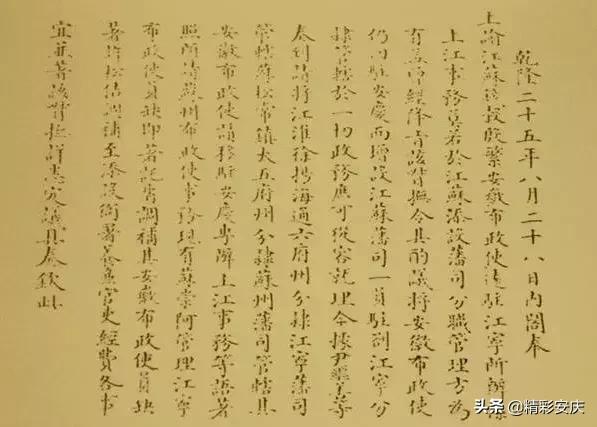 乾隆二十五年八月二十八日內閣奉
上諭江蘇錢穀殷繁安徽布政使遠駐江寧所辦係
上江事務莫若於江蘇添設藩司分職管理方為
有益曾經降旨該督撫令其酌議將安徽布政使
仍回駐安慶而增設江蘇藩司一員駐劄江寧分
隸管轄於一切政務應可從容就理今據尹繼善等
奏到請將江淮徐揚海通六府州分隸江寧藩司
管轄蘇松常鎮太五府州分隸蘇州藩司管轄其
安徽布政使請移駐安慶專辦上江事務等語著
照所請蘇州布政使事務現有蘇崇阿管理江寧
布政使員缺即著託庸調補其安徽布政使員缺
著許松佶調補至添設衙署養廉官吏經費各事
宜並著該督撫詳悉定議具奏欽此
头条 @精彩安庆